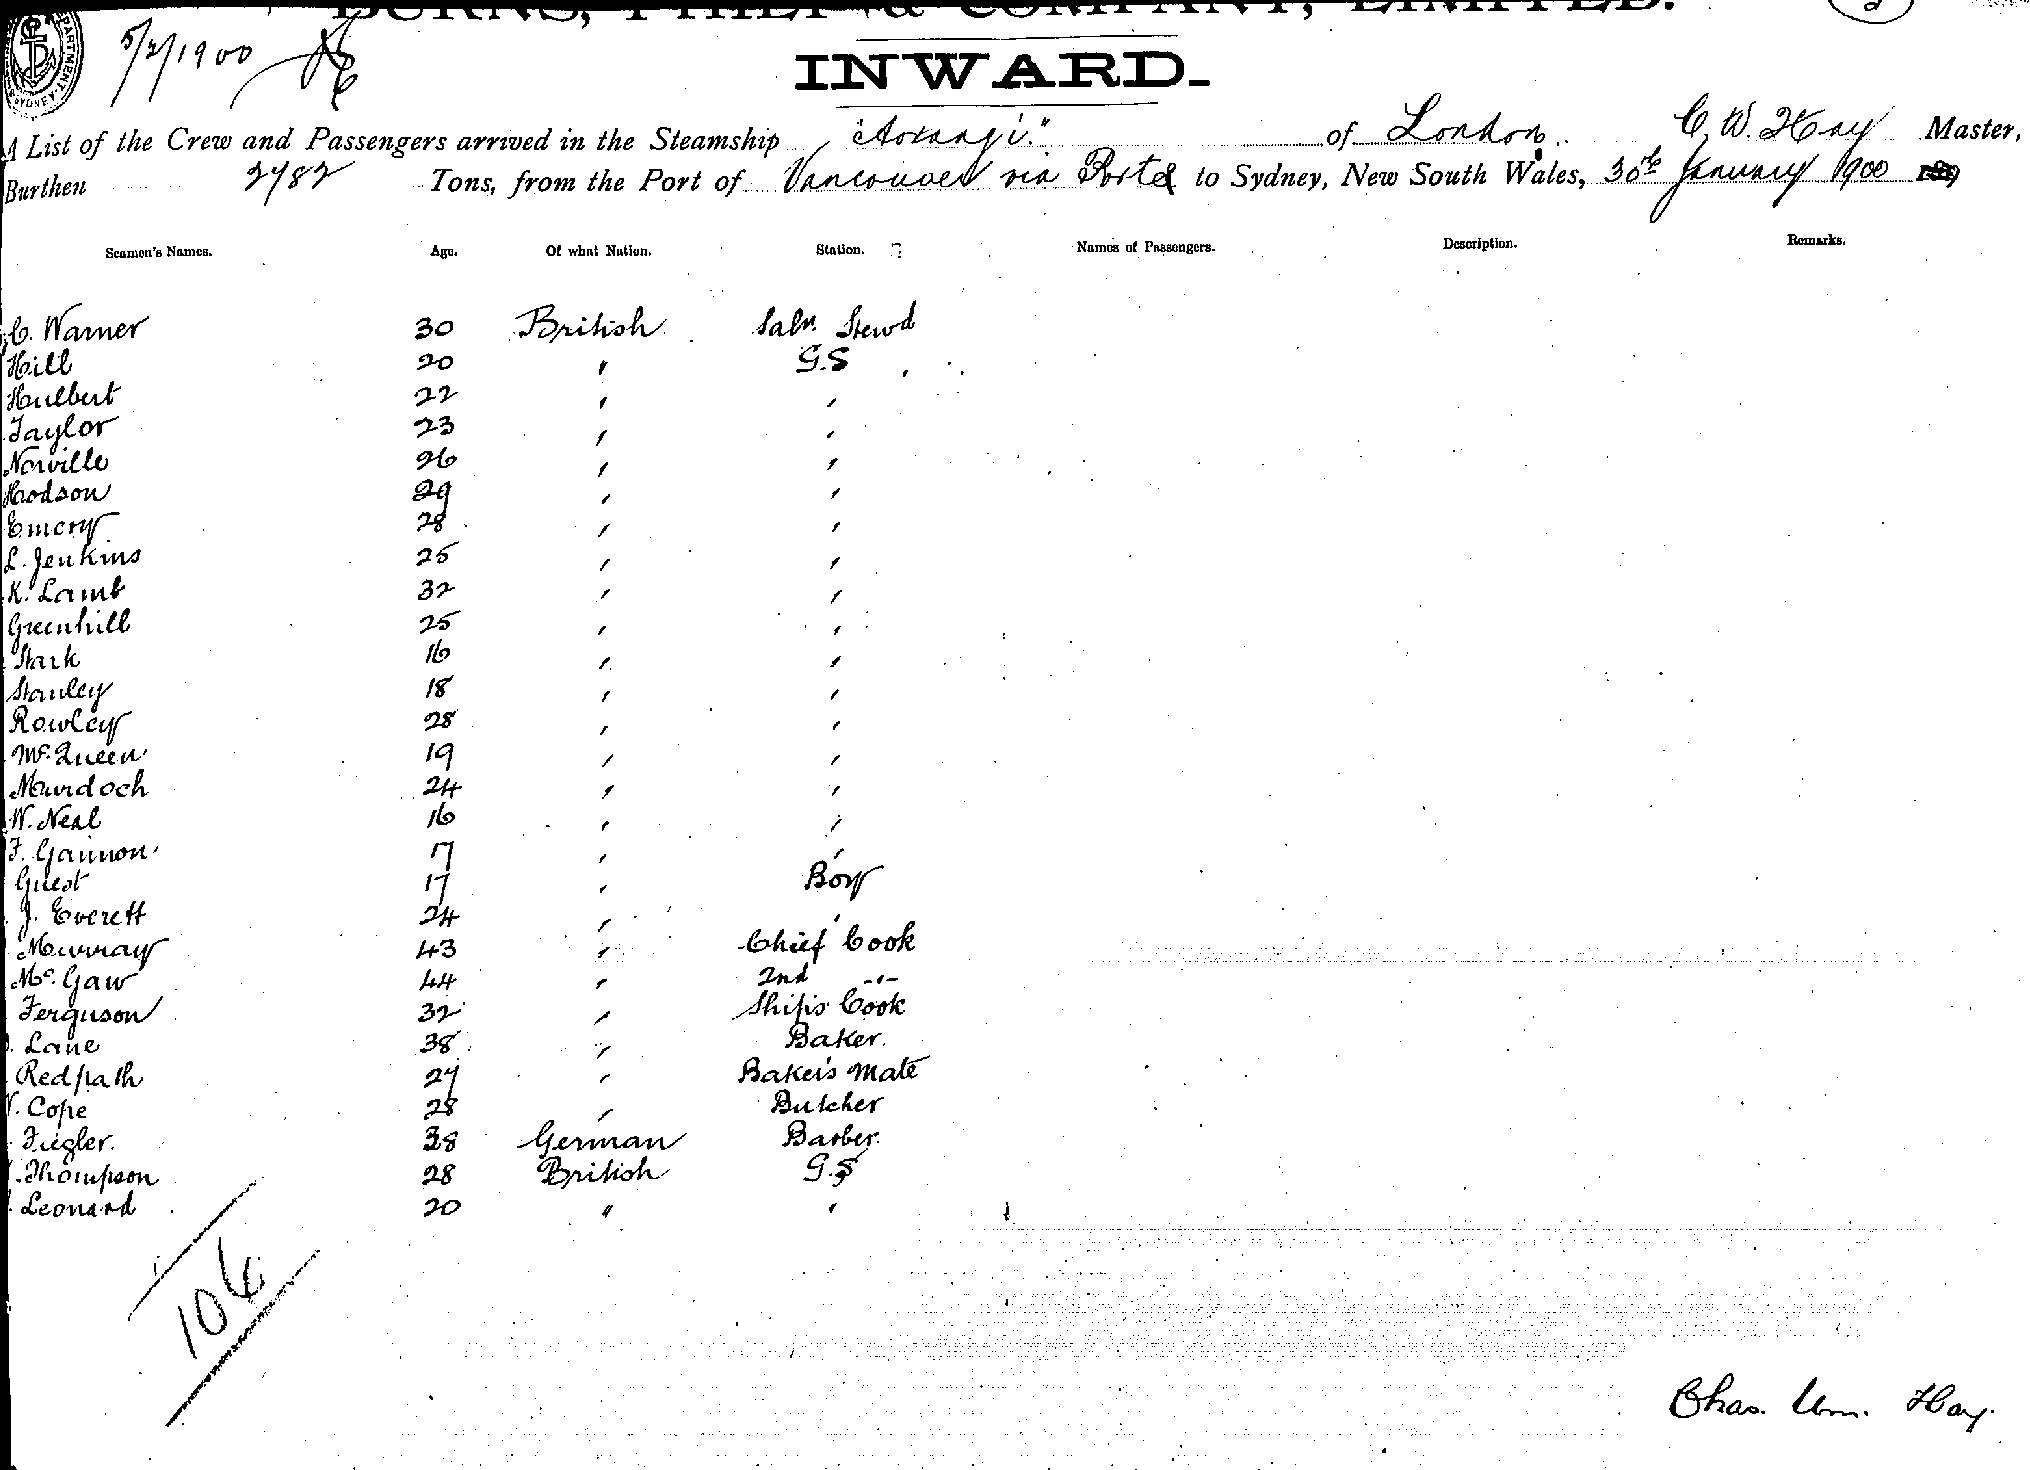 BURNS, PHILP & COMPANY, LIMITED.
5/2/1900
INWARD.
A List of the Crew and Passengers arrived in the Steamship "Aorangi." of London C. W. Hay Master,
Burthen 2782 Tons, from the Port of Vancouver via Ports to Sydney, New South Wales, 30th January 1900
Seamen's Names. Age. Of what Nation. Station. Names of Passengers. Description. Remarks.
C. Warner 30 British Saln. Stewd
Hill 20 " G.S
Hulbert 22 " "
Taylor 23 " "
Norville 26 " "
Hodson 29 " "
Emery 28 " "
L. Jenkins 25 " "
K. Lamb 32 " "
Greenhill 25 " "
Stark 16 " "
Stanley 18 " "
Rowley 28 " "
McQueen 19 " "
Murdoch 24 " "
W. Neal 16 " "
F. Gannon 17 " "
Guest 17 " Boy
J. Everett 24 " "
Murray 43 " Chief Cook
Mc. Gaw 44 " 2nd -"-
Ferguson 32 " Ships Cook
Lane 38 " Baker.
Redpath 27 " Baker's Mate
Cope 28 " Butcher
Fiegler. 38 German Barber.
Thompson 28 British G.S
Leonard 20 " "
106
Chas. Wm. Hay.